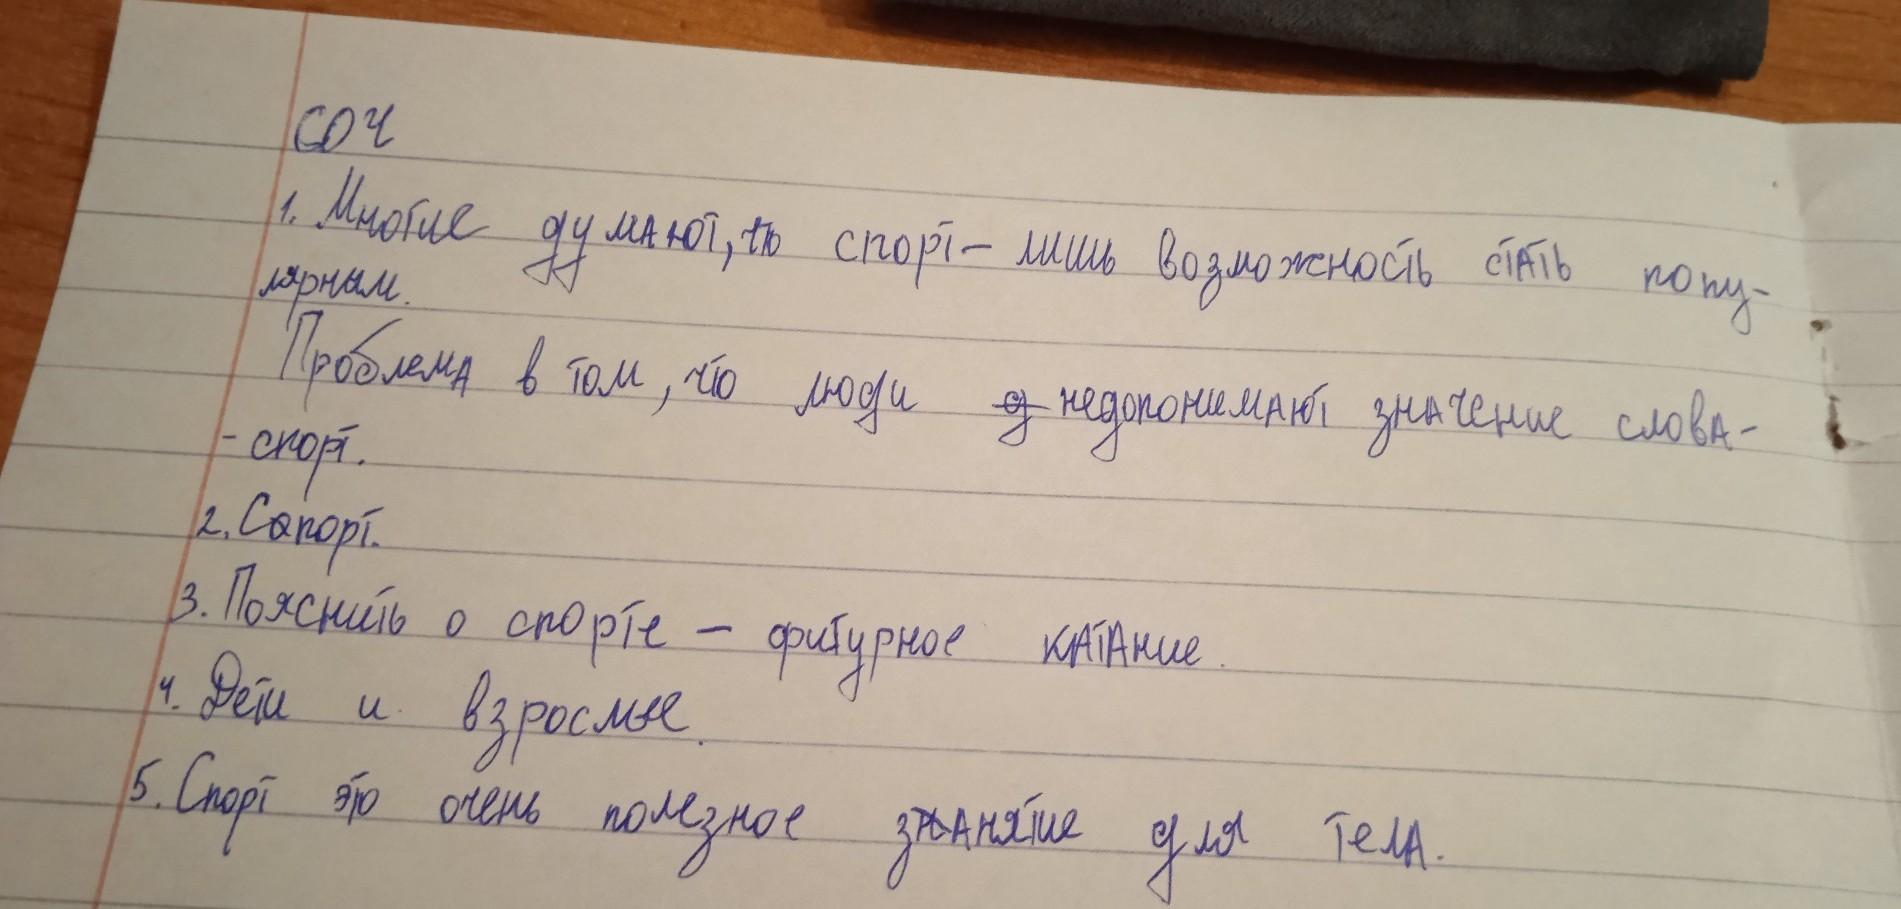 СОЧ
1. Многие думают, что спорт - лишь возможность стать попу-
лярным.
Проблема в том, что люди недопонимают значение слова-
- спорт.
2. Сапорт.
3. Пояснить о спорте - фигурное катание.
4. Дети и взрослые.
5. Спорт это очень полезное занятие для тела.